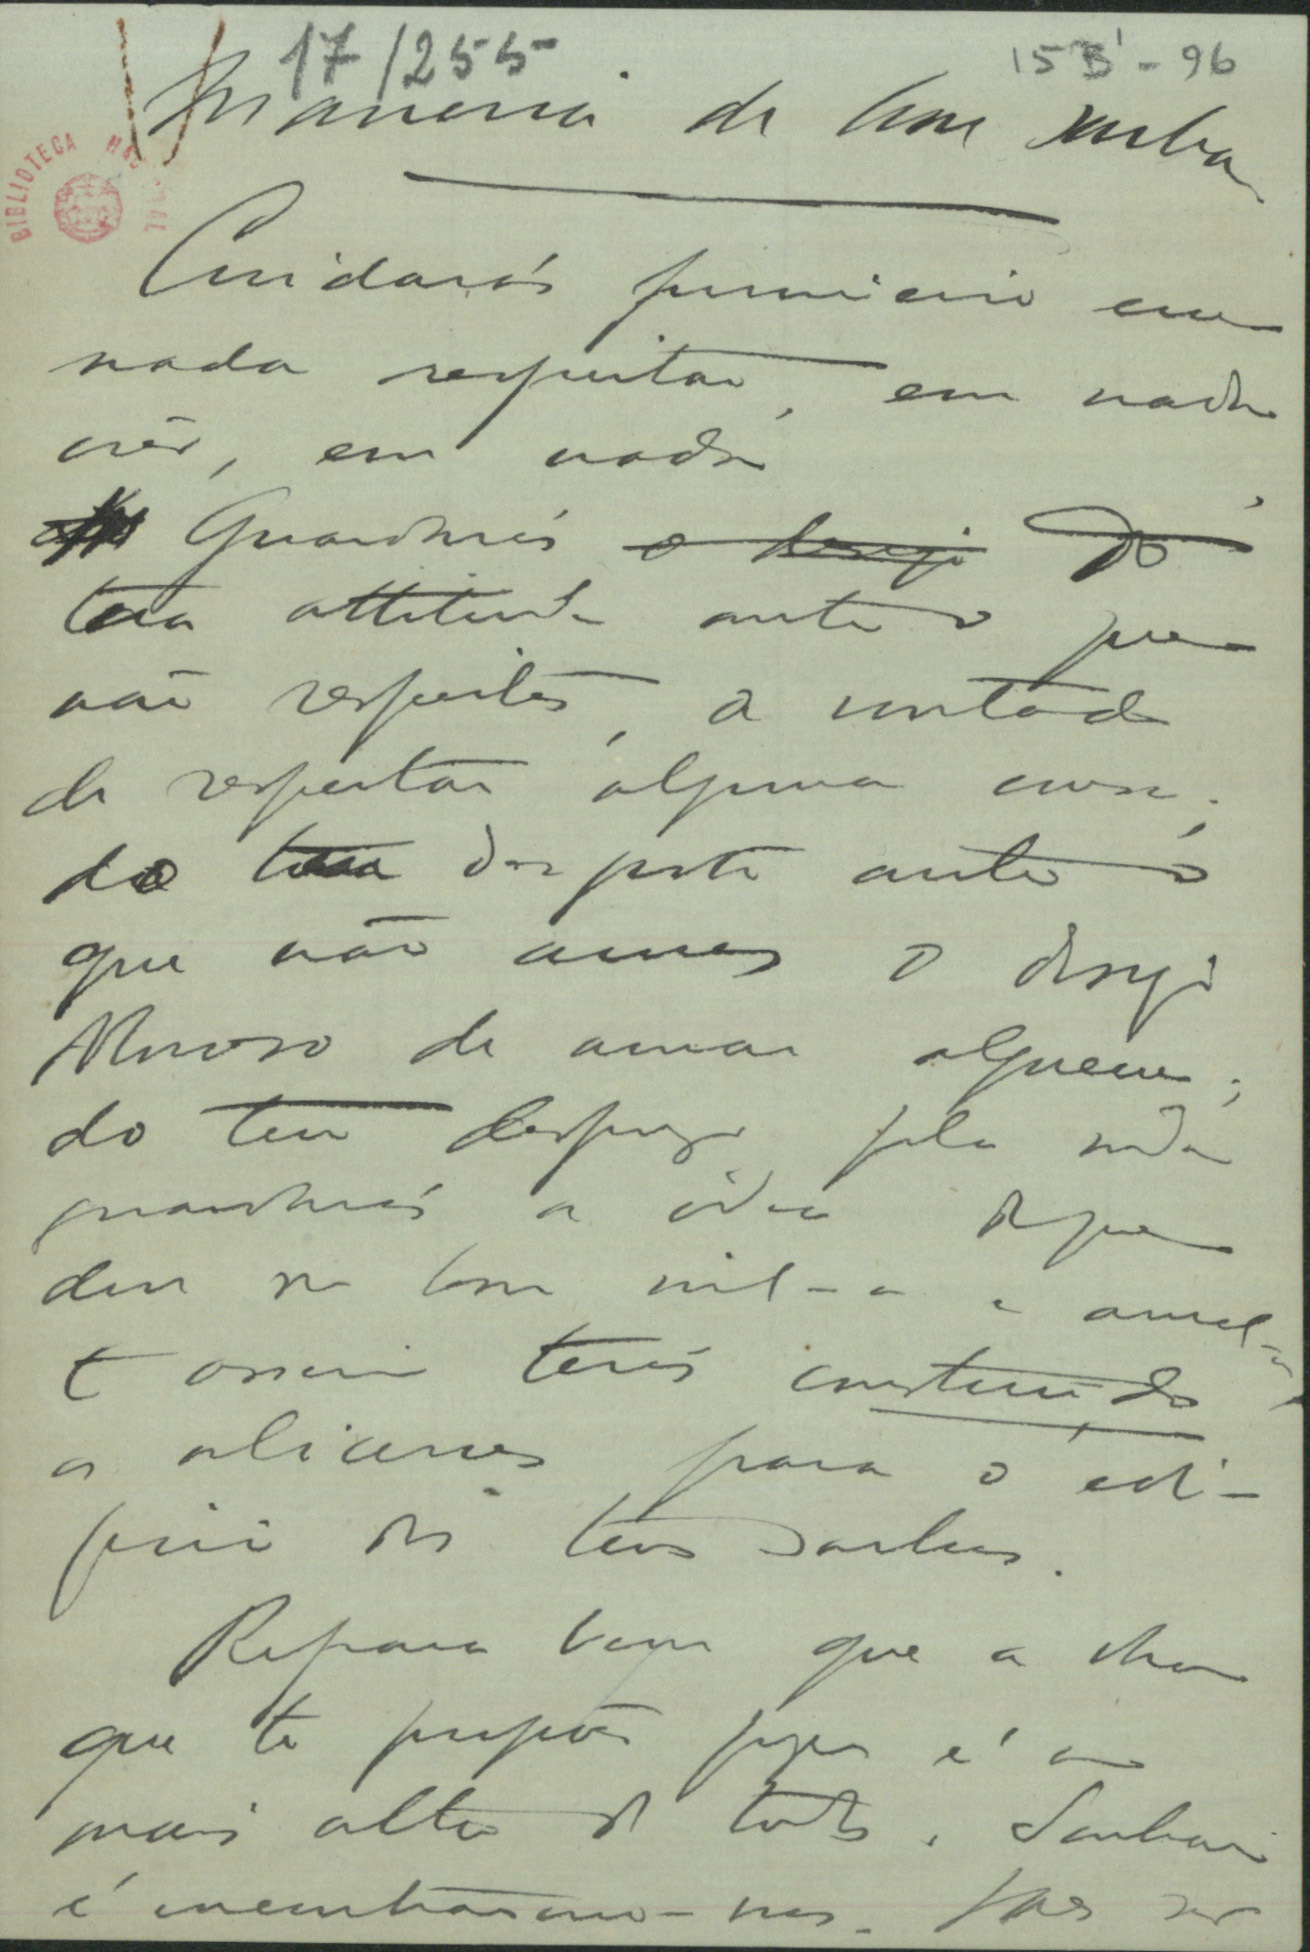 17/255
15 B¹ - 96
BIBLIOTECA NACIONAL
Maneira de bem sonhar
Cuidarás primeiro em
nada respeitar, em nada
crêr, em nada
Guardarás o desejo Da
tua attitude ante o que
não respeites, a vontade
de respeitar alguma cousa;
do teu desgosto ante o
que não ames o desejo
doloroso de amar alguem;
do teu desprezo pela vida
guardarás a idéa de que
deve ser bom vivel-a e amal-a
E assim terás construido
os alicerces para o edi-
ficio dos teus sonhos.
Repara bem que a obra
que te propões fazer é a
mais alta de todas. Sonhar
é encontrarmo-nos. Vaes ser